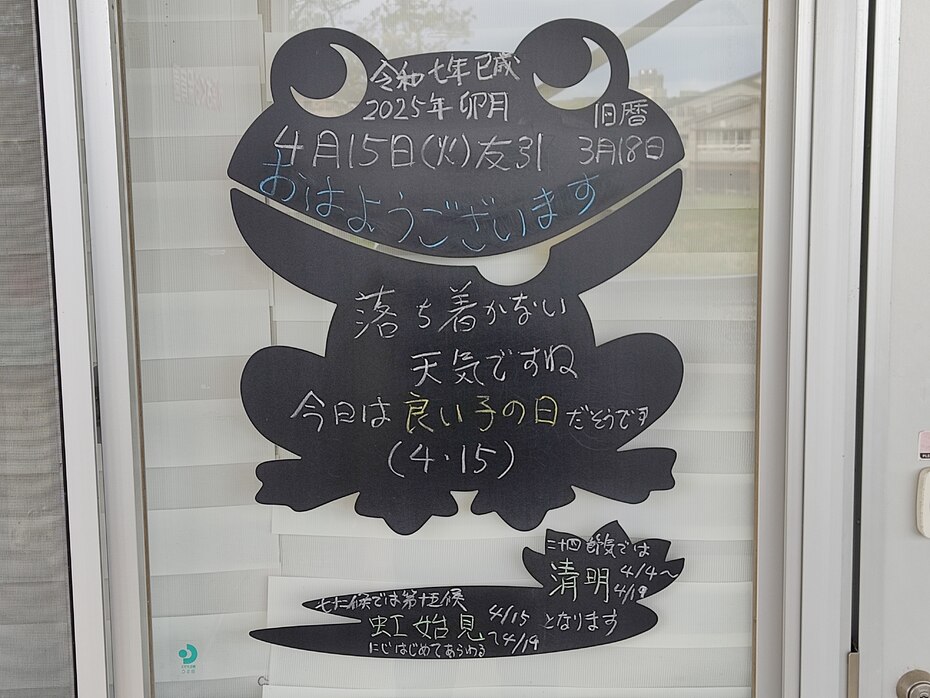 令和七年己戌
2025年卯月
旧暦
4月15日(火)友引
3月18日
おはようございます
落ち着かない
天気ですね
今日は良い子の日だそうです
(4・15)
二十四節気では
清明 4/4〜4/19
七十二候では第十五候
虹始見 4/15〜4/19 となります
にじはじめてあらわる